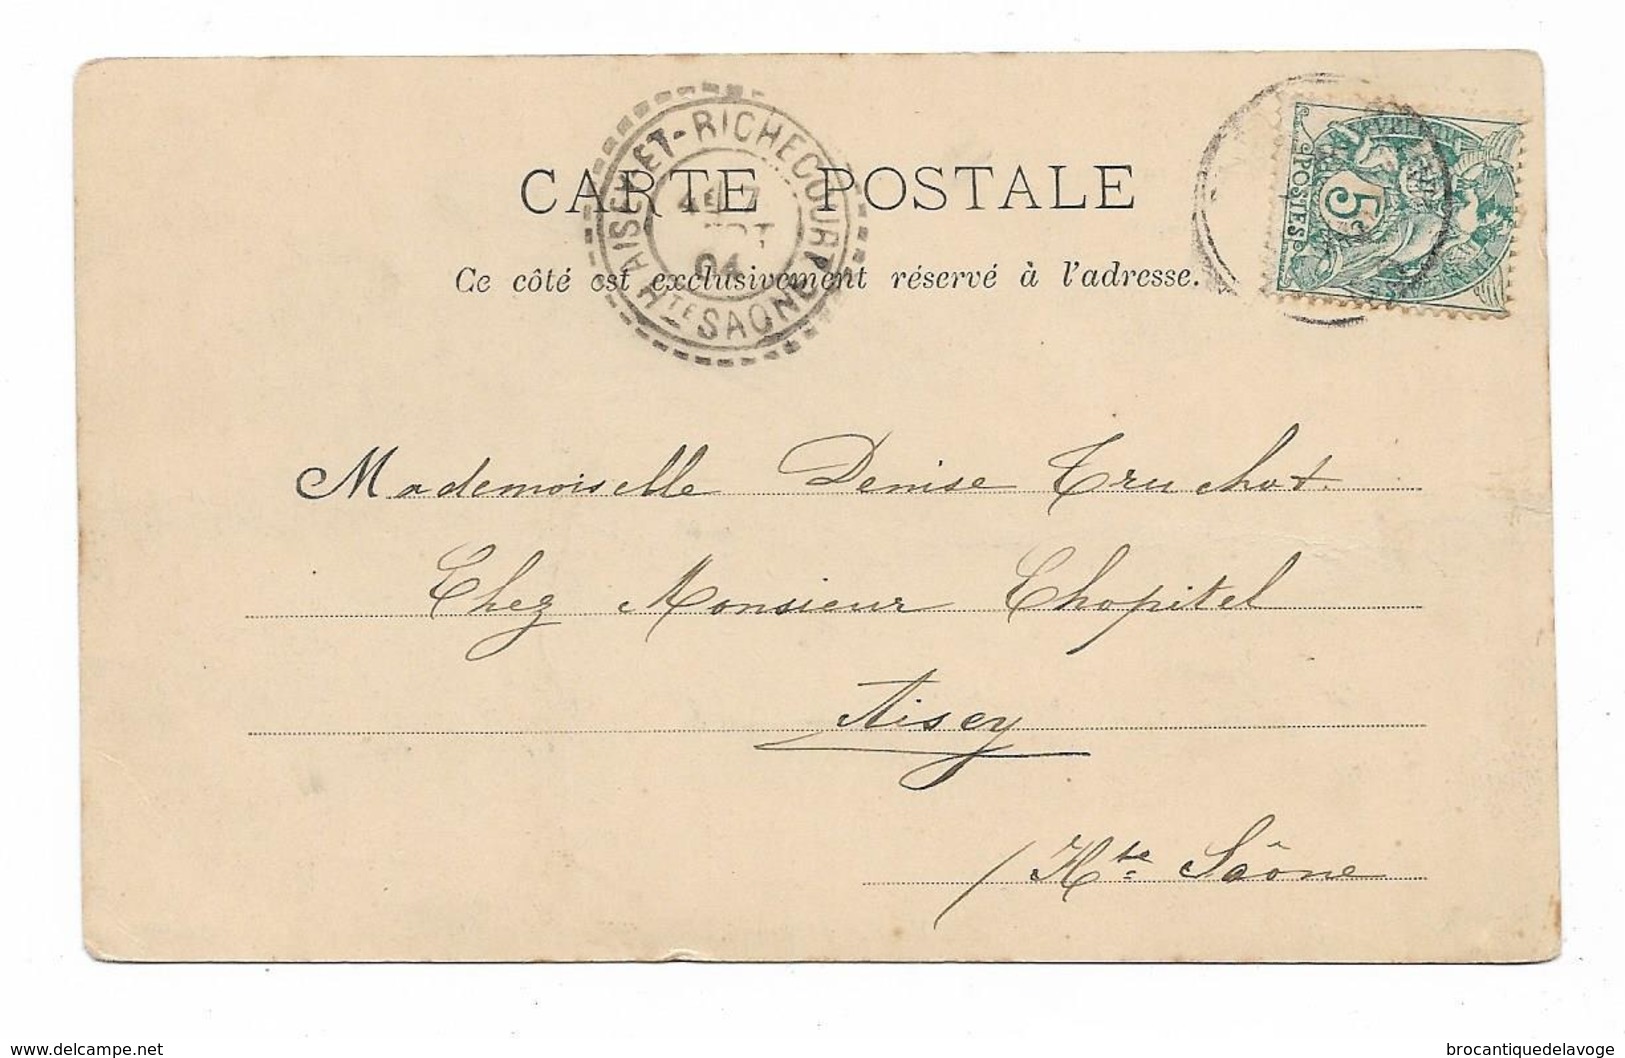 AISEY-ET-RICHECOURT
Hte SAONE
04
POSTES
5
CARTE POSTALE
Ce côté est exclusivement réservé à l'adresse.
Mademoiselle Denise Truchot.
Chez Monsieur Chopitel
Aisey
/ Hte Saône
www.delcampe.net
brocantiquedelavoge